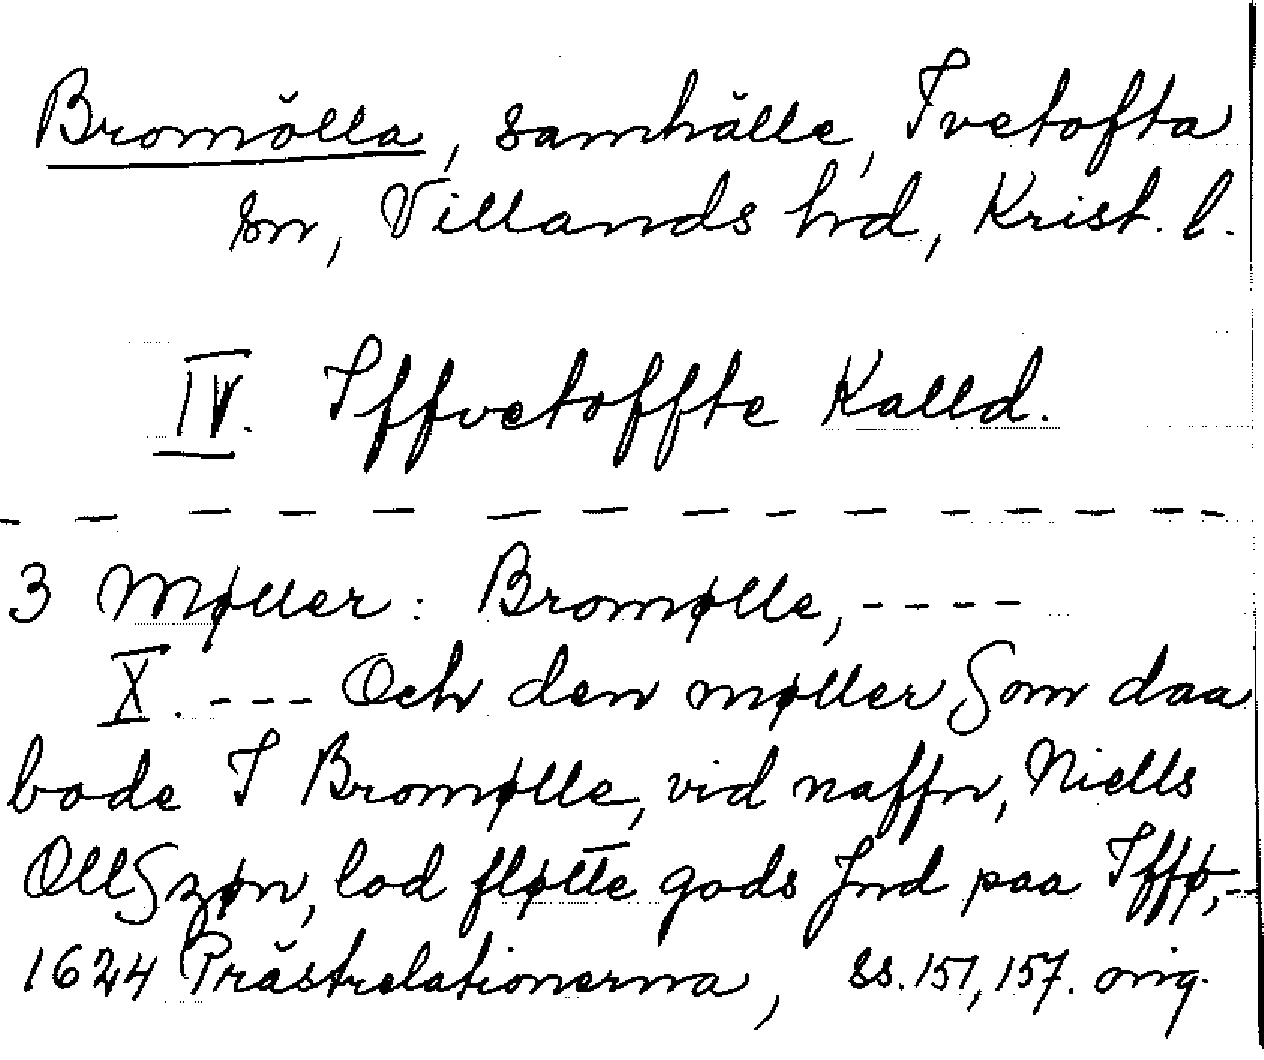 Bromölla, samhälle, Ivetofta
sn, Villands hrd, Krist. l.
IV. Iffvetoffte Kalld.
3 Møller: Bromølle, ----
X. --- Och den møller, Som daa
bode I Bromølle, vid naffn, Niells
OllSzøn, lod fløtte gods Jnd paa Iffø, --
1624 Prästrelationerna, ss. 151, 157. orig.